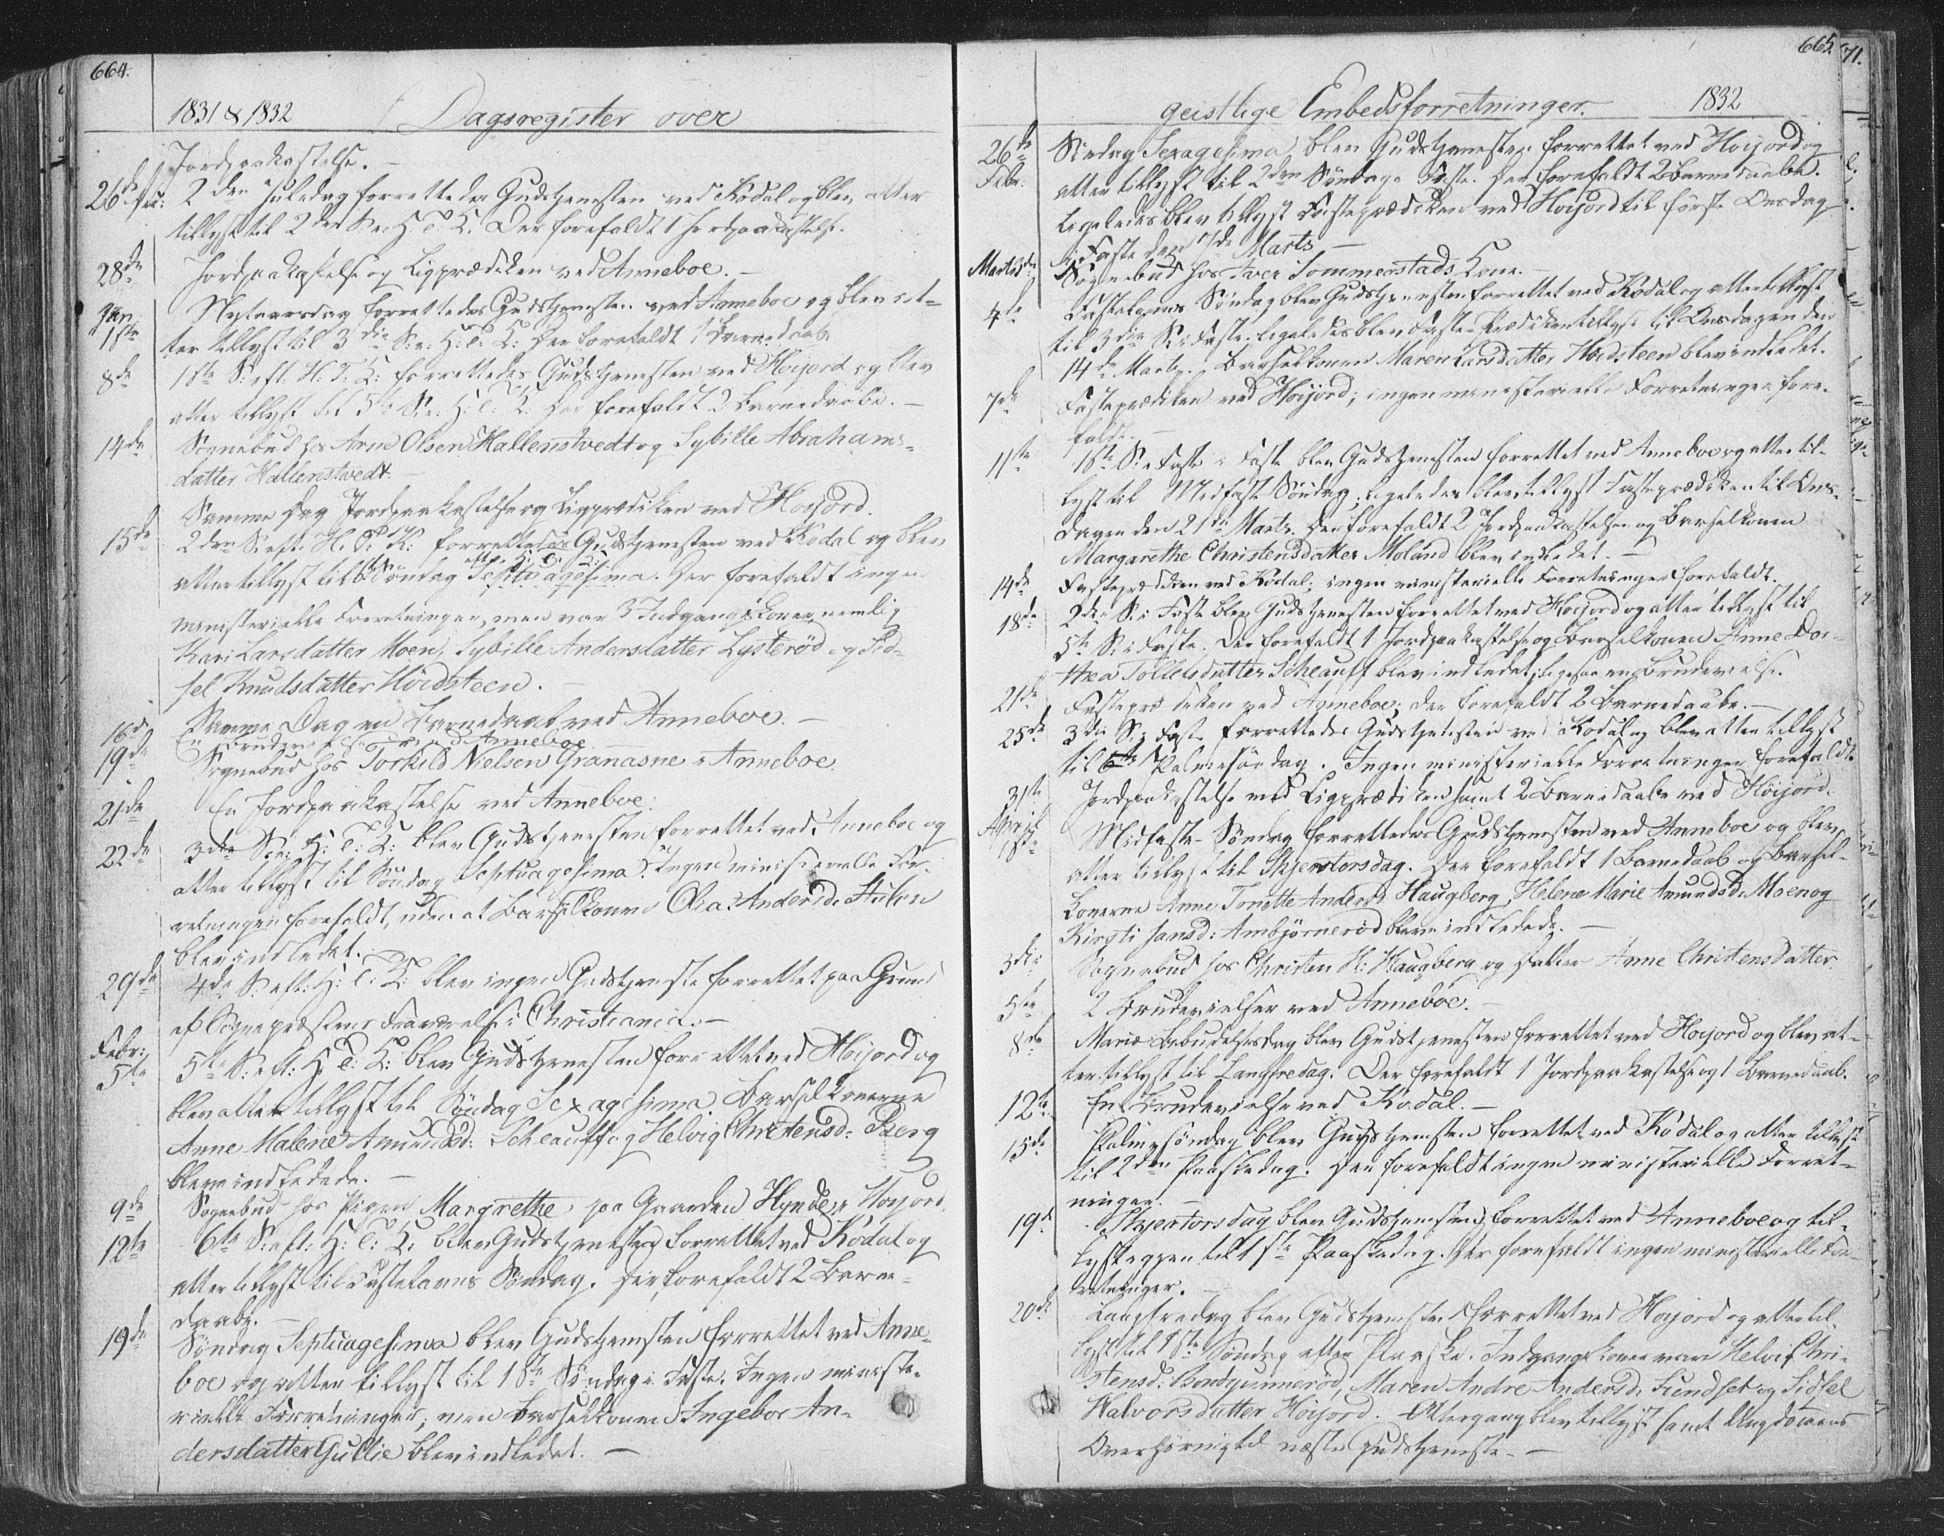 664.
1831 & 1832 Dagsregister over
Jordpaakastelse. –
26de 2den Juledag forrettedes Gudstjenesten ved Kodal og blev atter
tillyst til 2den S. e. H. T. K. Der forefaldt 1 Jordpaakastelse.
28de Jordpaakastelse og Liigprædiken ved Anneboe. –
Jan: 1ste Nytaarsdag forrettedes Gudstjenesten ved Anneboe og blev at-
ter tillyst til 3die S. e. H. T. K. Der forefaldt 1 Barnedaab.
8de 1ste S. eft. H. T. K. forrettedes Gudstjenesten ved Hoijord og blev
atter tillyst til 5te S. e. H. T. K. Der forefaldt 2 Barnedaabe. –
14de Sognebud hos Arne Olsen Hallenstvedt og Sybille Abrahams-
datter Hallenstvedt. –
Samme Dag Jordpaakastelse og Liigprædiken ved Hoijord.
15de 2den S. eft. H. T. K. forrettedes Gudstjenesten ved Kodal og blev
atter tillyst til 6te Søndag eft. H. T. K. Septuagesima. Der forefaldt ingen
ministerielle Forretninger, men var 3 Indgangskoner, nemlig
Kari Larsdatter Moen, Sybille Andersdatter Lysterød og Sid-
sel Knudsdatter Hørdsteen. –
16de Samme Dag en Barnedaab ved Anneboe. –
En Brudevielse ved Anneboe
19de Sognebud hos Torkild Nielsen Granasne i Anneboe.
21de En Jordpaakastelse ved Anneboe.
22de 3die S. e. H. T. K. blev Gudstjenesten forrettet ved Anneboe og
atter tillyst til Søndag Septuagesima. Ingen ministerielle For-
retninger forefaldt, uden at Barselkonen Olea Andersd.
blev indledet.
29de 4de S. eft. H. T. K. blev ingen Gudstjeneste forrettet paa Grund
af Sognepræstens Fraværelse i Christiania. –
Febr: 5te 5te S. eft. H. T. K. blev Gudstjenesten forrettet ved Hoijord og
blev atter tillyst til Søndag Sexagesima Barselkonerne
Anne Malene Amundsd: Scheauff og Helvig Christensd: Berg
bleve indledede. –
9de Sognebud hos Pigen Margrethe paa Gaarden Hynde i Hoijord.
12te 6te S. eft. H. T. K. blev Gudstjenesten forrettet ved Kodal og
atter tillyst til Fastelavns Søndag. Der forefaldt 2 Barne-
daabe. –
19de Søndag Septuagesima blev Gudstjenesten forrettet ved Anne-
boe og atter tillyst til 1ste Søndag i Faste. Ingen ministe-
rielle Forretninger; men Barselkonen Ingebor An-
dersdatter Gullie blev indledet. –
665. 71.
geistlige Embedsforretninger. 1832
26de Febr. Søndag Sexagesima blev Gudstjenesten forrettet ved Hoijord og
atter tillyst til 2den Søndag i Faste. Der forefaldt 2 Barnedaabe.
Ligeledes blev tillyst Fasteprædiken ved Hoijord til første Onsdag
i Faste den 7de Marts –
Marts Sognebud hos Iver Sommerstads Kone. –
4de Fastelavns Søndag blev Gudstjenesten forrettet ved Kodal og atter tillyst
til 3die S. i Faste. Ligeledes blev Faste Prædiken tillyst til Onsdagen den
14de Marts. Barselkonen Maren Larsdatter Hørdsteen blev indledet.
7de Fasteprædiken ved Hoijord; ingen ministerielle Forretninger fore-
faldt. –
11te 1ste S. i Faste blev Gudstjenesten forrettet ved Anneboe og atter til-
lyst til Midfaste Søndag, ligeledes blev tillyst Fasteprædiken til Ons-
dagen den 21de Marts. Der forefaldt 2 Jordpaakastelser og Barselkonen
Margarethe Christensdatter Moland blev indledet. –
14de Fasteprædiken ved Kodal; ingen ministerielle Forretninger forefaldt.
18de 2den S. i Faste blev Gudstjenesten forrettet ved Hoijord og atter tillyst til
5te S. i Faste. Der forefaldt 1 Jordpaakastelse og Barselkonen Anne Dor-
thea Tollefsdatter Scheauff blev indledet, ligesaa en Brudevielse.
21de Fasteprædiken ved Anneboe. Der forefaldt 2 Barnedaabe. –
25de 3die S. i Faste forrettedes Gudstjenesten ved Kodal og blev atter tillyst
til Palmesøndag. Ingen ministerielle Forretninger forefaldt.
31te Jordpaakastelse med Liigprædiken samt 2 Barnedaabe ved Hoijord.
April 1ste Midfaste-Søndag forrettedes Gudstjenesten ved Anneboe og blev
atter tillyst til Skjertorsdag. Der forefaldt 1 Barnedaab og Barsel-
konerne Anne Tonette Andersd. Haugberg, Helene Marie Amundsd. Moen og
Kirsti Jansd: Ambjørnerød bleve indledede. –
3die Sognebud hos Christen H. Haugberg og Datter Anne Christensdatter.
5te 2 Brudevielser ved Anneboe. –
8de Mariæ Bebudelsesdag blev Gudstjenesten forrettet ved Hoijord og blev at-
ter tillyst til Langfredag. Der forefaldt 1 Jordpaakastelse og 1 Barnedaab.
12te En Brudevielse ved Kodal. –
15de Palmesøndag blev Gudstjenesten forrettet ved Kodal og atter tillyst
til 2den Paaskedag. Der forefaldt ingen ministerielle Forret-
ninger. –
19de Skjertorsdag blev Gudstjenesten forrettet ved Anneboe og til-
lyst igjen til 1ste Paaskedag. Der forefaldt ingen ministerielle For-
retninger. –
20de Langfredag blev Gudstjenesten forrettet ved Hoijord og atter til-
lyst til 1ste Søndag efter Paaske. Indgangskoner vare Helvig Chri-
stensd: Bondgunnerød, Maren Andre Andersd. Sundset og Sidsel
Halvorsdatter Hoijord. Altergang blev tillyst samt Ungdommens
Overhøring til næste Gudstjeneste. –